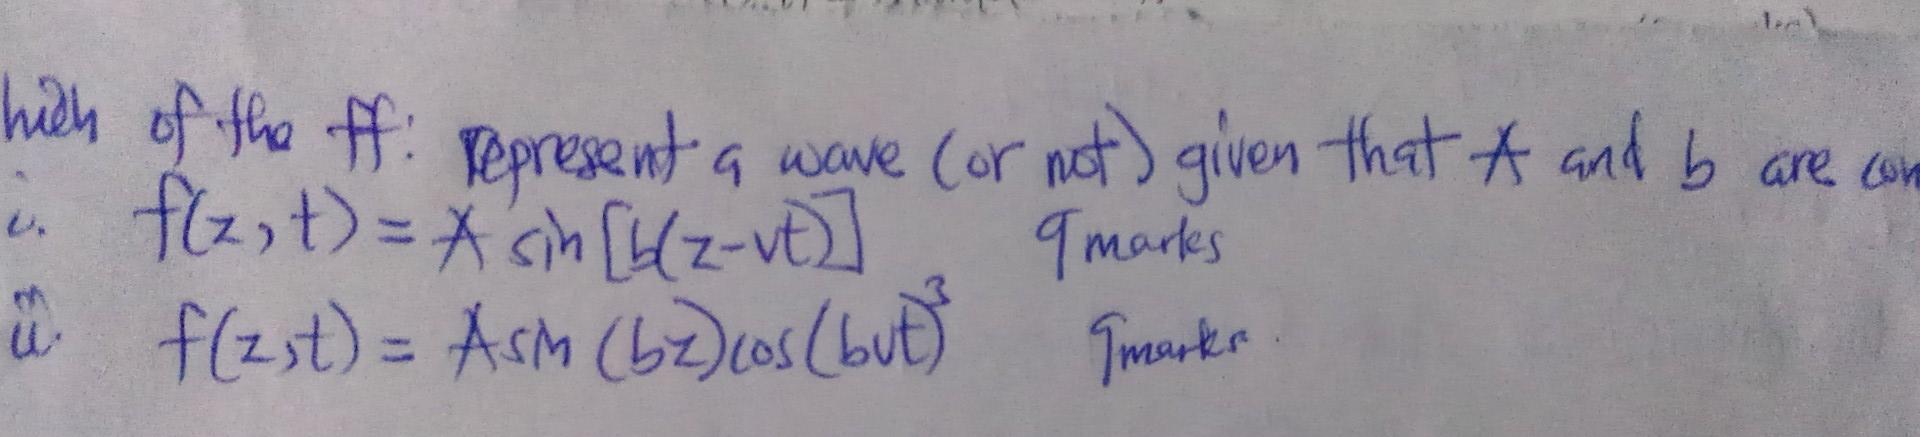 hich of the ff: represent a wave (or not) given that A and b are con
i. f(z,t) = A sin[b(z-vt)] 9 marks
ii. f(z,t) = A sin (bz) cos(bvt)³ 9 marks.